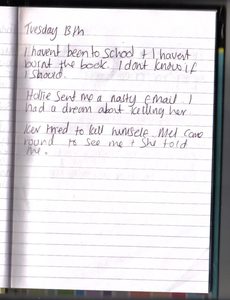 Tuesday 13th
I havent been to school + I havent
burnt the book. I dont know if
I should.
Hollie sent me a nasty email. I
had a dream about killing her.
tried to kill himself. Mel came
round to see me + she told
me.